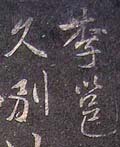 李邕
久別